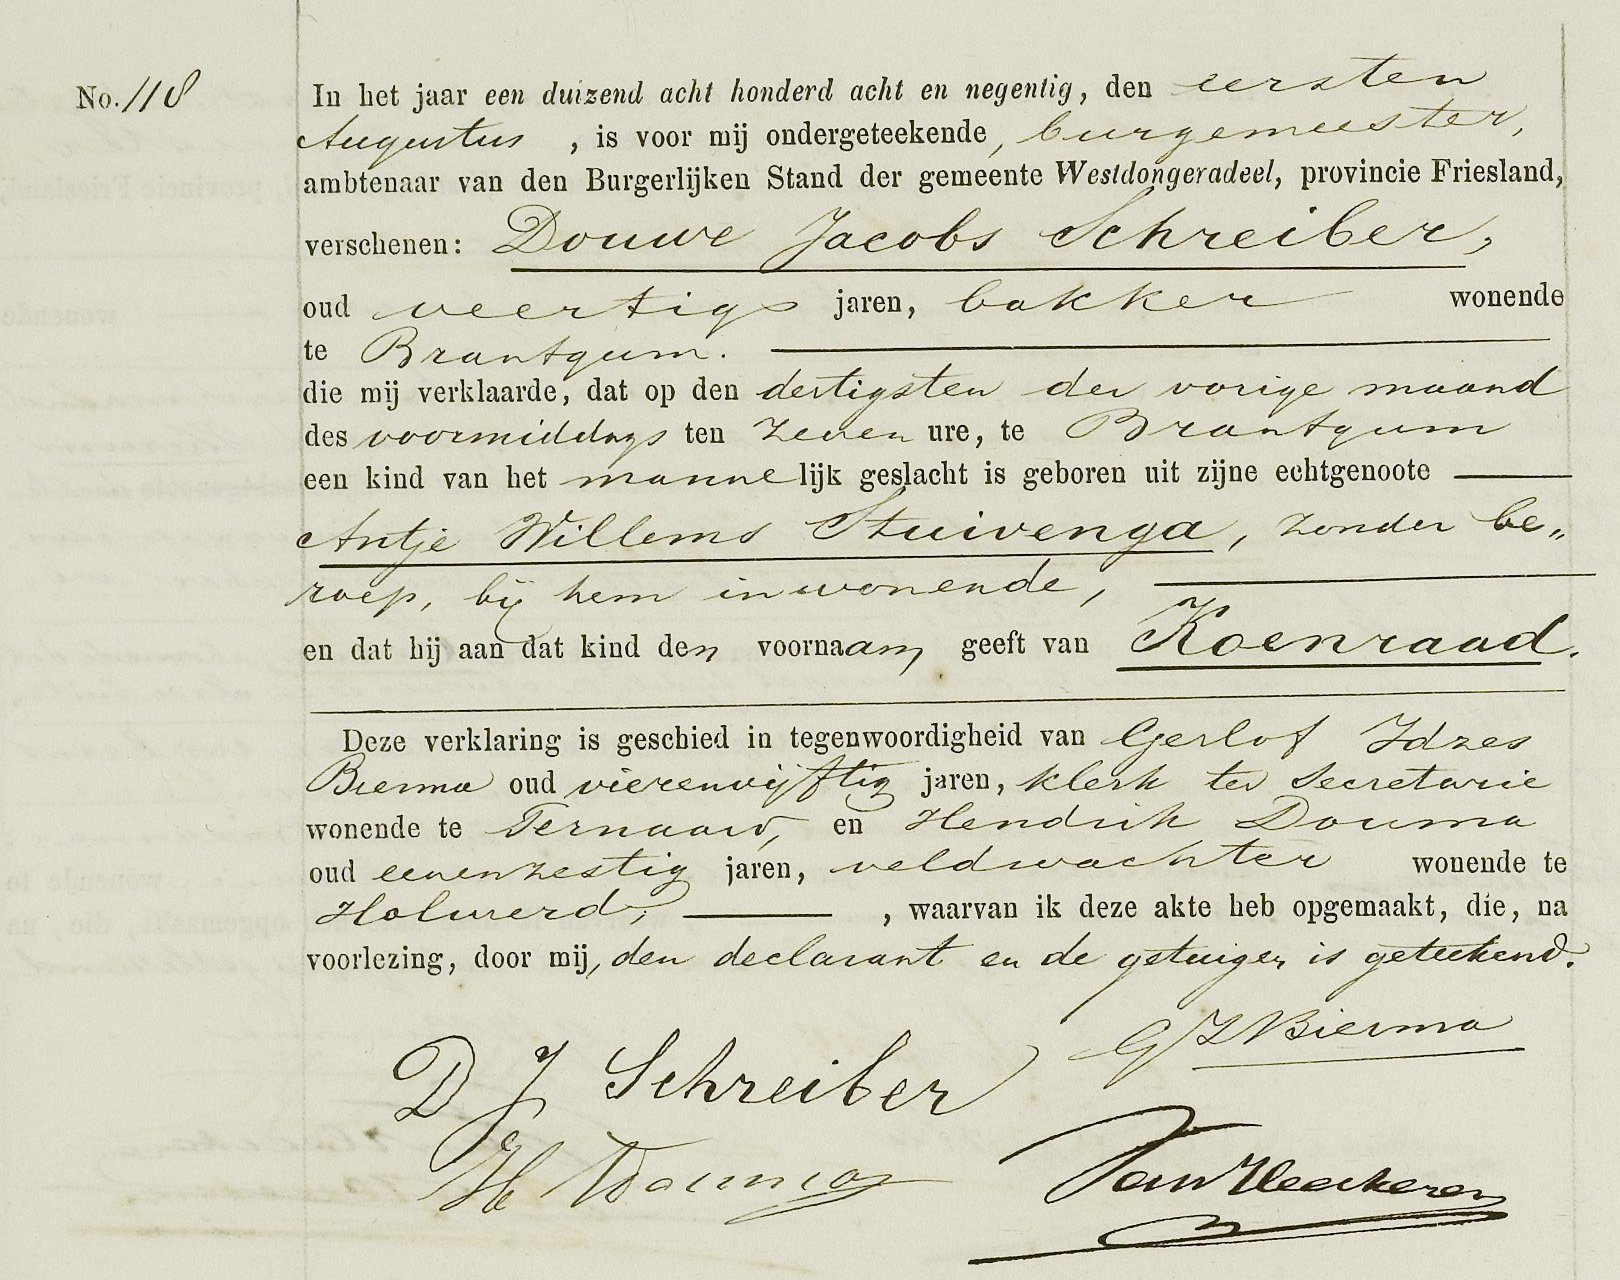 No. 118
In het jaar een duizend acht honderd acht en negentig, den eersten
Augustus , is voor mij ondergeteekende, burgemeester,
ambtenaar van den Burgerlijken Stand der gemeente Westdongeradeel, provincie Friesland,
verschenen: Douwe Jacobs Schreiber,
oud veertig jaren, bakker wonende
te Brantgum.
die mij verklaarde, dat op den dertigsten der vorige maand
des voormiddags ten zeven ure, te Brantgum
een kind van het mannelijk geslacht is geboren uit zijne echtgenoote
Antje Willems Stuivenga, zonder be„
roep, bij hem inwonende,
en dat hij aan dat kind den voornaam, geeft van Koenraad.
Deze verklaring is geschied in tegenwoordigheid van Gerlof Idzes
Bierma oud vierenvijftig jaren, klerk ter Secretarie
wonende te Ternaard, en Hendrik Douma
oud eenenzestig jaren, veldwachter wonende te
Holwerd, , waarvan ik deze akte heb opgemaakt, die, na
voorlezing, door mij, den declarant en de getuigen is geteekend.
G I Bierma
D J Schreiber
H Douma